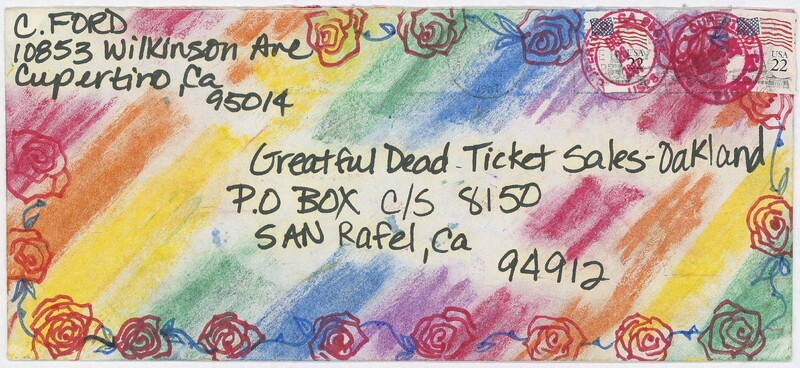 C. FORD
10853 Wilkinson Ave
Cupertino, Ca
95014
Greatful Dead Ticket Sales-Oakland
P.O BOX C/S 8150
SAN Rafel, Ca
94912
USA
22
USA
22